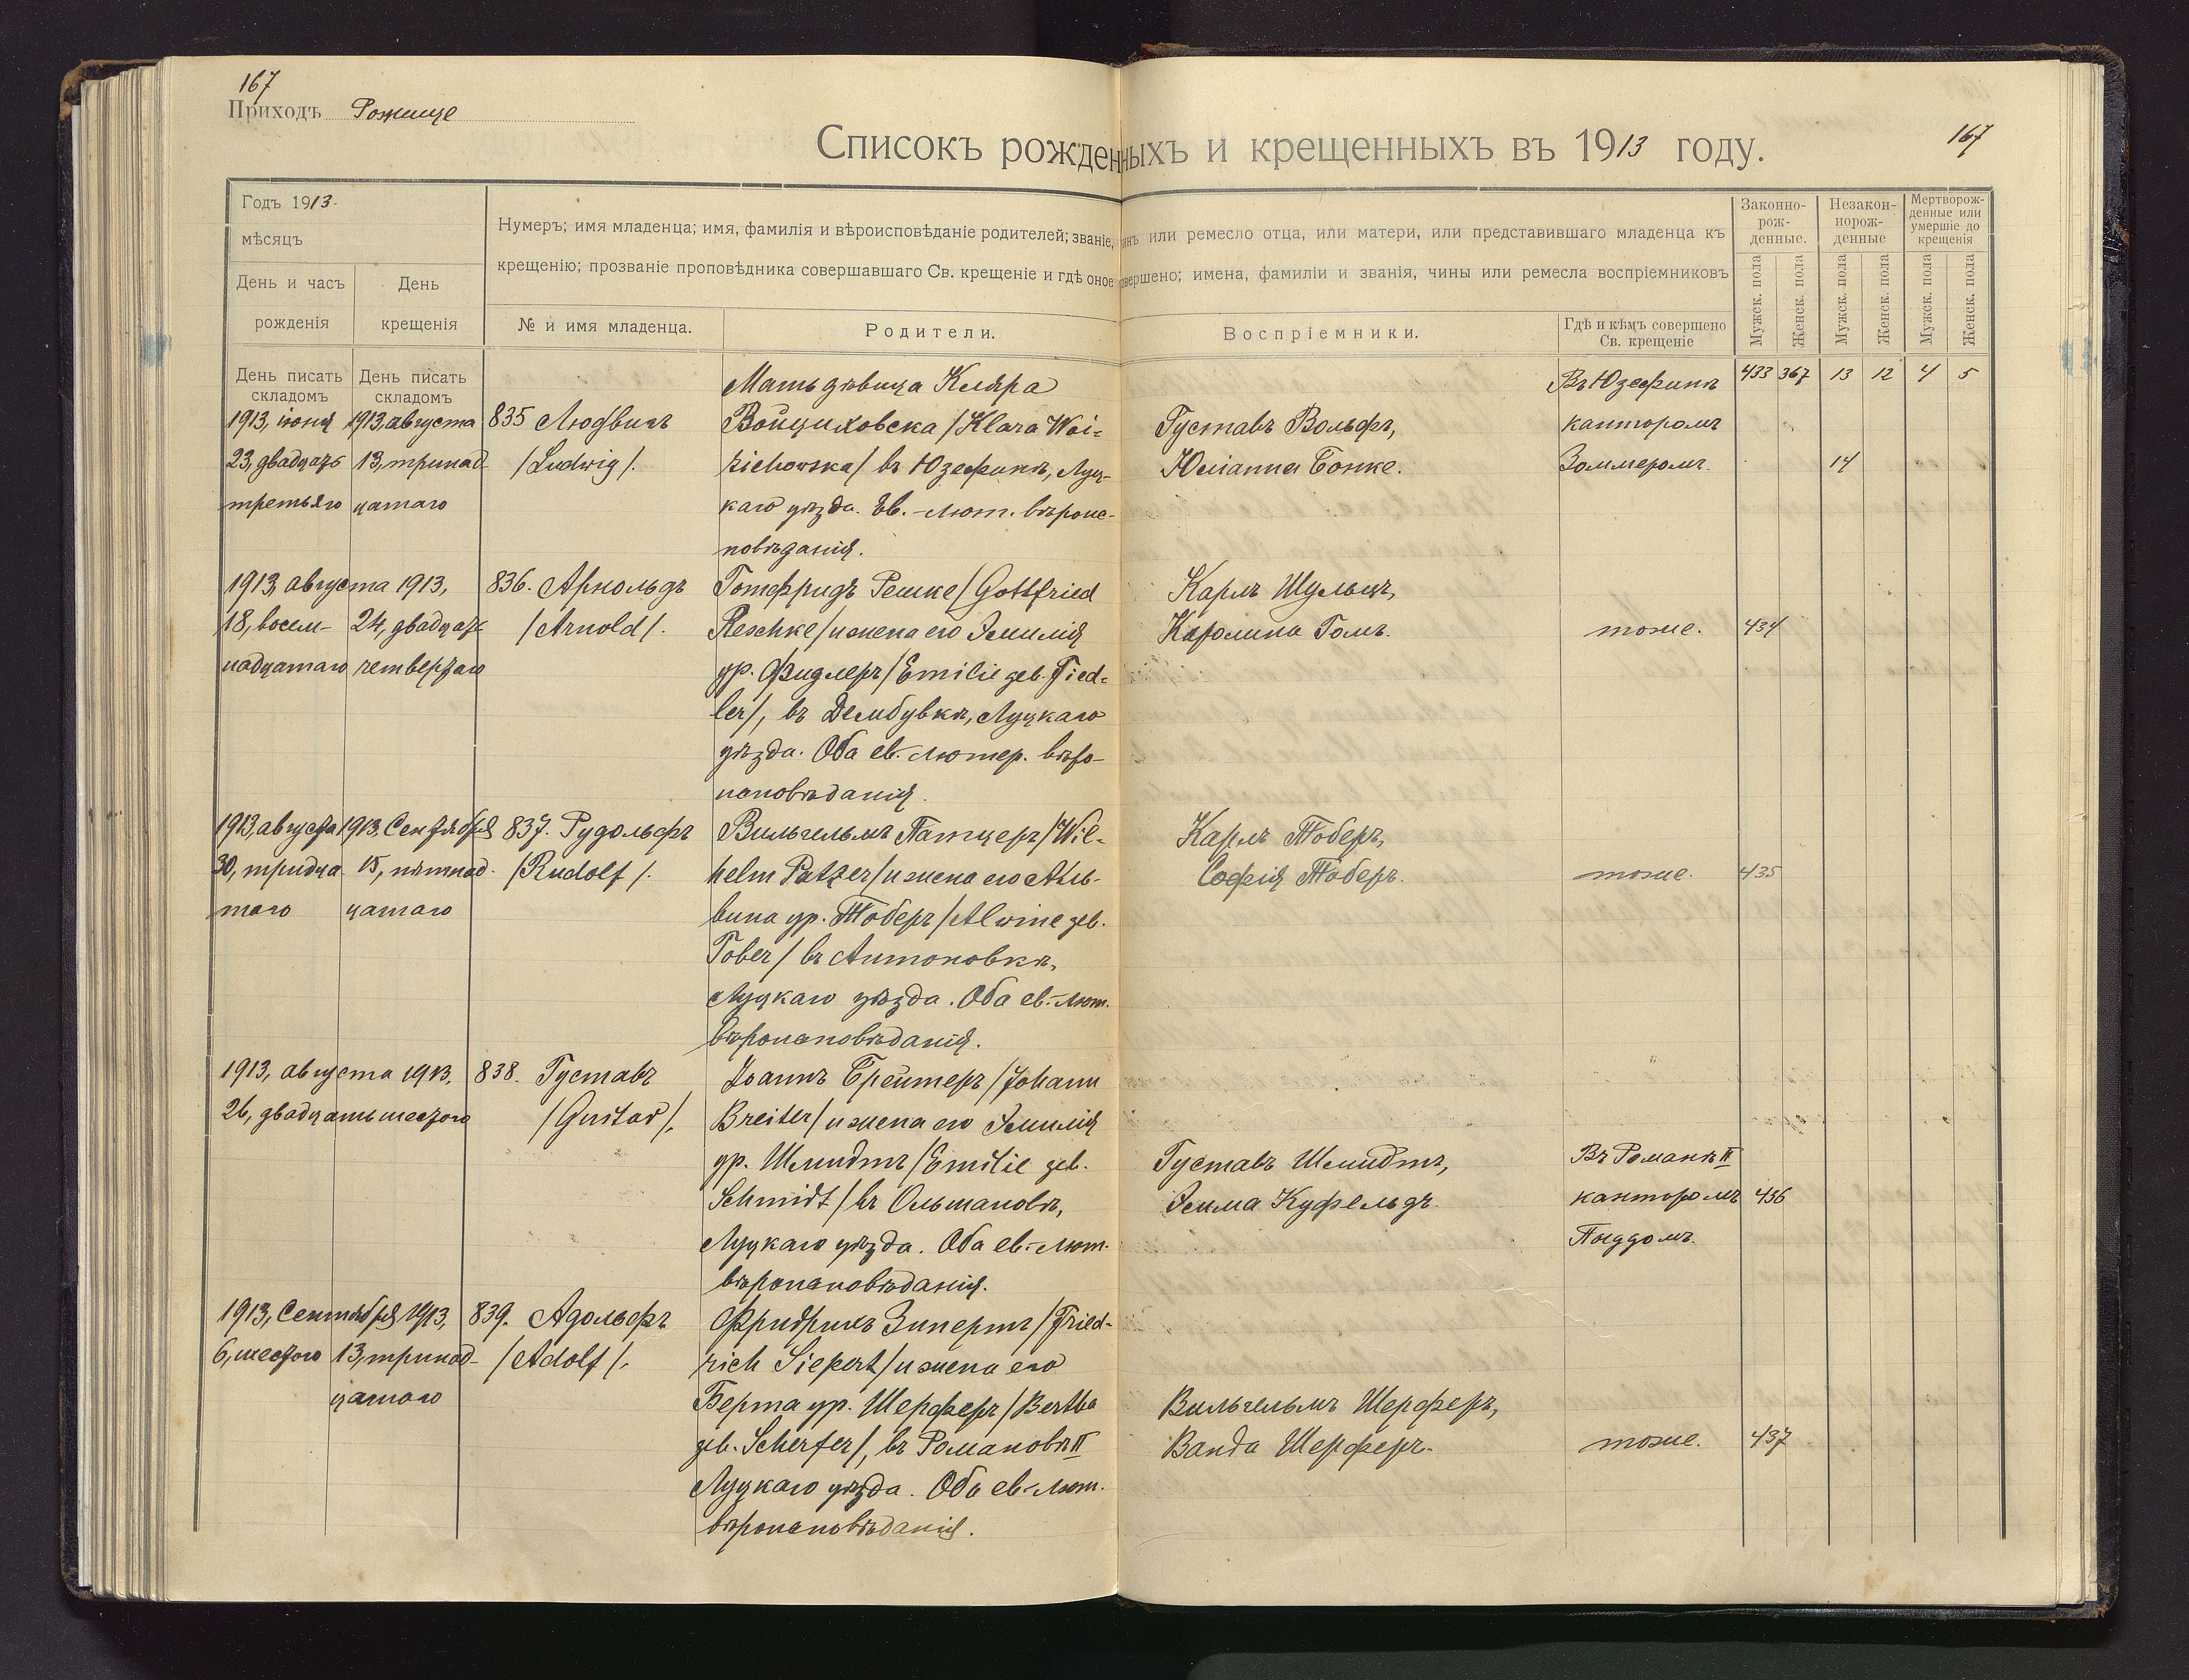 167
Приходъ Рожище
Списокъ рожденныхъ и крещенныхъ въ 1913 году.
167
Годъ 1913.
мѣсяцъ
День и часъ рожденія
День крещенія
Нумеръ; имя младенца; имя, фамилія и вѣроисповѣданіе родителей; званіе, чинъ или ремесло отца, или матери, или представившаго младенца къ
крещенію; прозваніе проповѣдника совершавшаго Св. крещеніе и гдѣ оное совершено; имена, фамиліи и званія, чины или ремесла воспріемниковъ
№ и имя младенца.
Родители.
Воспріемники.
Гдѣ и кѣмъ совершено
Св. крещеніе
Законно-
рож-
денные.
Незакон-
норож-
денные
Мертворож-
денные или
умершіе до
крещенія
Мужск. пола
Женск. пола
Мужск. пола
Женск. пола
Мужск. пола
Женск. пола
День писать
складомъ
День писать
складомъ
433 367 13 12 4 5
1913, іюня
23, двадцать
третьяго
1913, августа
13, тринад-
цатаго
835 Людвигъ
/Ludwig/.
Мать дѣвица Клара
Войциховска /Klara Woi-
zichowska/ въ Юзефинѣ, Луц-
каго уѣзда. Ев.-лют. вѣроис-
повѣданія.
Густавъ Вольфъ,
Юліанна Бонке.
Въ Юзефинѣ
канторомъ
Зоммеромъ.
14
1913, августа
18, восем-
надцатаго
1913,
24, двадцать
четвертаго
836. Арнольдъ
/Arnold/.
Готфридъ Решке /Gottfried
Reschke/ и жена его Эмилія
ур. Фидлеръ /Emilie geb. Fied-
ler/, въ Дембувкѣ, Луцкаго
уѣзда. Оба ев.-лютер. вѣро-
исповѣданія.
Карлъ Шульцъ,
Каролина Гольъ.
тоже.
434
1913, августа
30, тридца
таго
1913, Сентября
15, пятнад-
цатаго
837. Рудольфъ
/Rudolf/.
Вильгельмъ Патцеръ /Wil-
helm Patzer/ и жена его Аль-
вина ур. Тоберъ /Alwine geb.
Tober/ въ Антоновкѣ,
Луцкаго уѣзда. Оба ев.-лют.
вѣроисповѣданія.
Карлъ Тоберъ,
Софія Тоберъ.
тоже.
435
1913, августа 1913,
26, двадцать шестого
838. Густавъ
/Gustav/.
Іоаннъ Брейтеръ /Johann
Breiter/ и жена его Эмилія
ур. Шмидтъ /Emilie geb.
Schmidt/ въ Ольшановѣ,
Луцкаго уѣзда. Оба ев.-лют.
вѣроисповѣданія.
Густавъ Шмидтъ,
Эмма Куфельдъ.
Въ Романѣ II
канторомъ
436
1913, Сентября
6, шестого
1913,
13, тринад-
цатаго
839. Адольфъ
/Adolf/.
Фридрихъ Зипертъ /Fried-
rich Siepert/ и жена его
Берта ур. Шерферъ /Bertha
geb. Scherfer/, въ Романовѣ II
Луцкаго уѣзда. Оба ев-лют.
вѣроисповѣданія.
Вильгельмъ Шерферъ,
Ванда Шерферъ.
тоже.
437